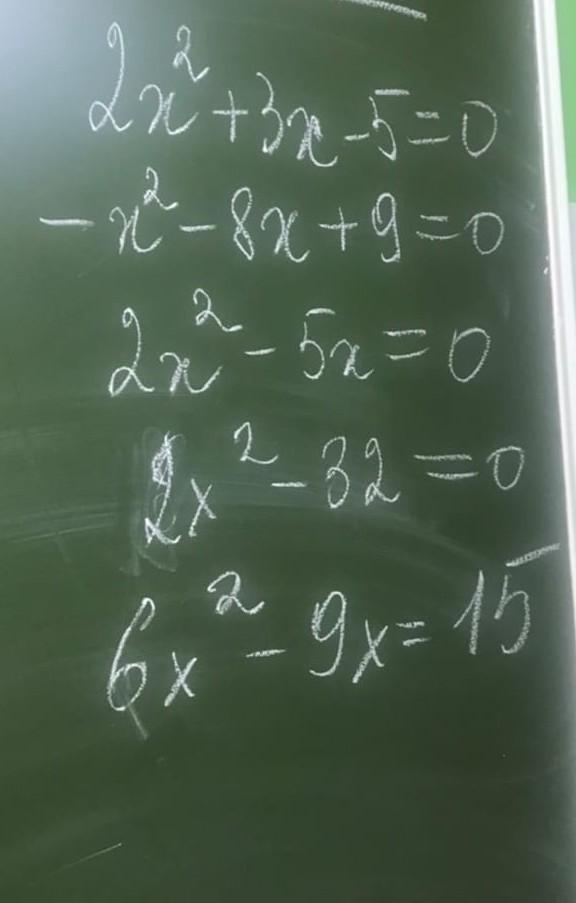 2x² + 3x - 5 = 0
- x² - 8x + 9 = 0
2x² - 5x = 0
2x² - 32 = 0
6x² - 9x = 15